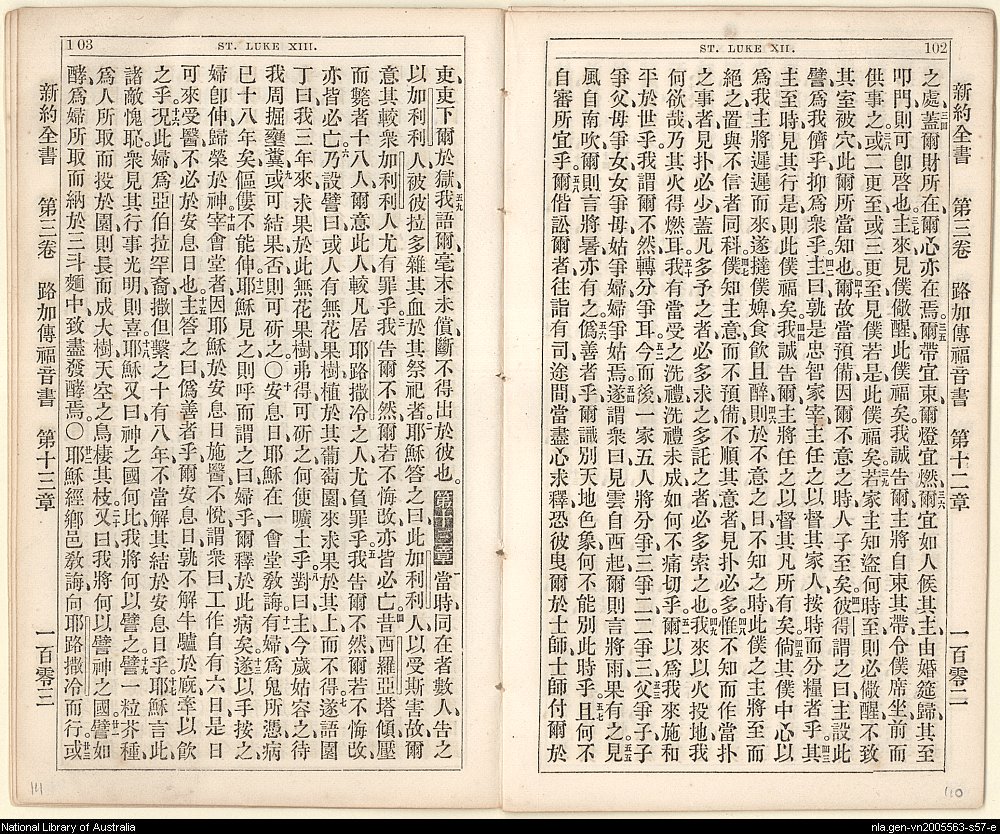 102
ST. LUKE XII.
新約全書 第三卷 路加傳福音書 第十二章 一百零二
之處蓋爾財所在爾心亦在焉爾帶宜束爾燈宜燃爾宜如人候其主由婚筵歸其至
叩門則可卽啓也主來見僕儆醒此僕福矣我誠告爾主將自束其帶令僕席坐前而
供事之或二更至或三更至見僕若是此僕福矣若家主知盜何時至則必儆醒不致
其室被穴此爾所當知也爾故當預備因爾不意之時人子至矣彼得謂之曰主設此
譬爲我儕乎抑爲衆乎主曰孰是忠智家宰主任之以督其家人按時而分糧者乎其
主至時見其行是則此僕福矣我誠告爾主將任之以督其凡所有矣倘其僕中心以
爲我主將遲遲而來遂撻僕婢食飲且醉則於不意之日不知之時此僕之主將至而
絕之置與不信者同科僕知主意而不預備不順其意者見扑必多惟不知而作當扑
之事者見扑必少蓋凡多予之者必多求之多託之者必多索之也我來以火投地我
何欲哉乃其火得燃耳我有當受之洗禮洗禮未成如何不痛切乎爾以爲我來施和
平於世乎我謂爾不然轉分爭耳今而後一家五人將分爭三爭二二爭三父爭子子
爭父母爭女女爭母姑爭婦婦爭姑焉遂謂衆曰見雲自西起爾則言將雨果有之見
風自南吹爾則言將暑亦有之僞善者乎爾識別天地色象何不能別此時乎且何不
自審所宜乎爾偕訟爾者往詣有司途間當盡心求釋恐彼曳爾於士師士師付爾於
110
103
ST. LUKE XIII.
吏吏下爾於獄我語爾毫末未償斷不得出於彼也第十三章當時同在者數人告之
以加利利人被彼拉多雜其血於其祭祀者耶穌答之曰此加利利人以受斯害故爾
意其較衆加利利人尤有罪乎我告爾不然爾若不悔改亦皆必亡昔西羅亞塔傾壓
而斃者十八人爾意此人較凡居耶路撒冷之人尤負罪乎我告爾不然爾若不悔改
亦皆必亡乃設譬曰或人有無花果樹植於其葡萄園來求果於其上而不得遂語園
丁曰我三年來求果於此無花果樹弗得可斫之何使曠土乎對曰主今歲姑容之待
我周掘壅糞或可結果否則可斫之〇安息日耶穌在一會堂敎誨有婦爲鬼所憑病
已十八年矣傴僂不能伸耶穌見之則呼而謂之曰婦乎爾釋於此病矣遂以手按之
婦卽伸歸榮於神宰會堂者因耶穌於安息日施醫不悅謂衆曰工作自有六日是日
可來受醫不必於安息日也主答之曰僞善者乎爾安息日孰不解牛驢於厩牽以飮
之乎况此婦爲亞伯拉罕裔撒但繫之十有八年不當解其結於安息日乎耶穌言此
諸敵愧恥衆見其行事光明則喜耶穌又曰神之國何比我將何以譬之譬一粒芥種
爲人所取而投於園則長而成大樹天空之鳥棲其枝又曰我將何以譬神之國譬如
酵爲婦所取而納於三斗麵中致盡發酵焉〇耶穌經鄉邑敎誨向耶路撒冷而行或
新約全書 第三卷 路加傳福音書 第十三章 一百零三
111
National Library of Australia
nla.gen-vn2005563-s57-e